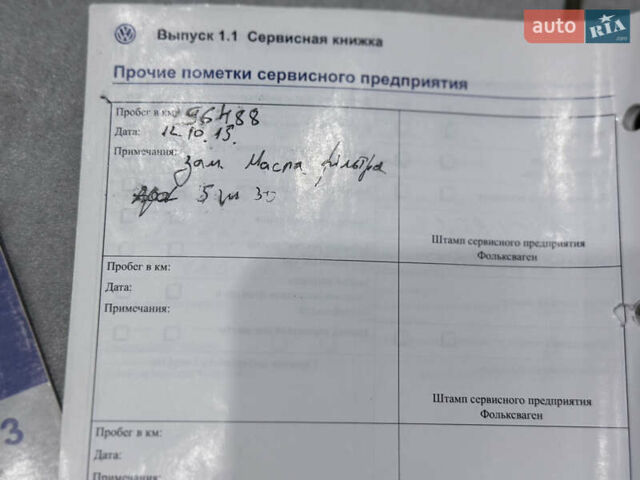 auto RIA .com
Выпуск 1.1 Сервисная книжка
Прочие пометки сервисного предприятия
Пробег в км: 96488
Дата: 12.10.15.
Примечания: Зам Масла, фільтра
5 30
Штамп сервисного предприятия
Фольксваген
Пробег в км:
Дата:
Примечания:
Штамп сервисного предприятия
Фольксваген
Пробег в км:
Дата:
Примечания:
3